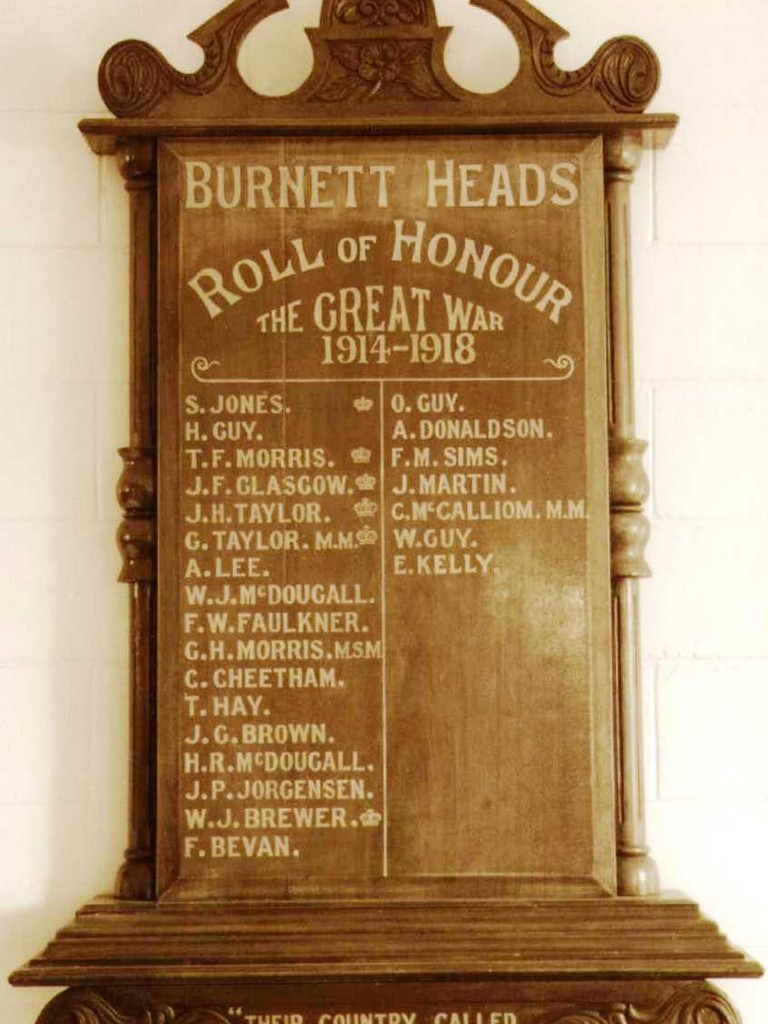 BURNETT HEADS
ROLL OF HONOUR
THE GREAT WAR
1914-1918
S. JONES.
H. GUY.
T. F. MORRIS.
J. F. GLASGOW.
J. H. TAYLOR.
G. TAYLOR. M.M.
A. LEE.
W. J. McDOUGALL.
F. W. FAULKNER.
G. H. MORRIS. M.S.M
C. CHEETHAM.
T. HAY.
J. G. BROWN.
H. R. McDOUGALL.
J. P. JORGENSEN.
W. J. BREWER.
F. BEVAN.
O. GUY.
A. DONALDSON.
F. M. SIMS.
J. MARTIN.
C. McCALLIOM. M.M.
W. GUY.
E. KELLY.
"THEIR COUNTRY CALLED